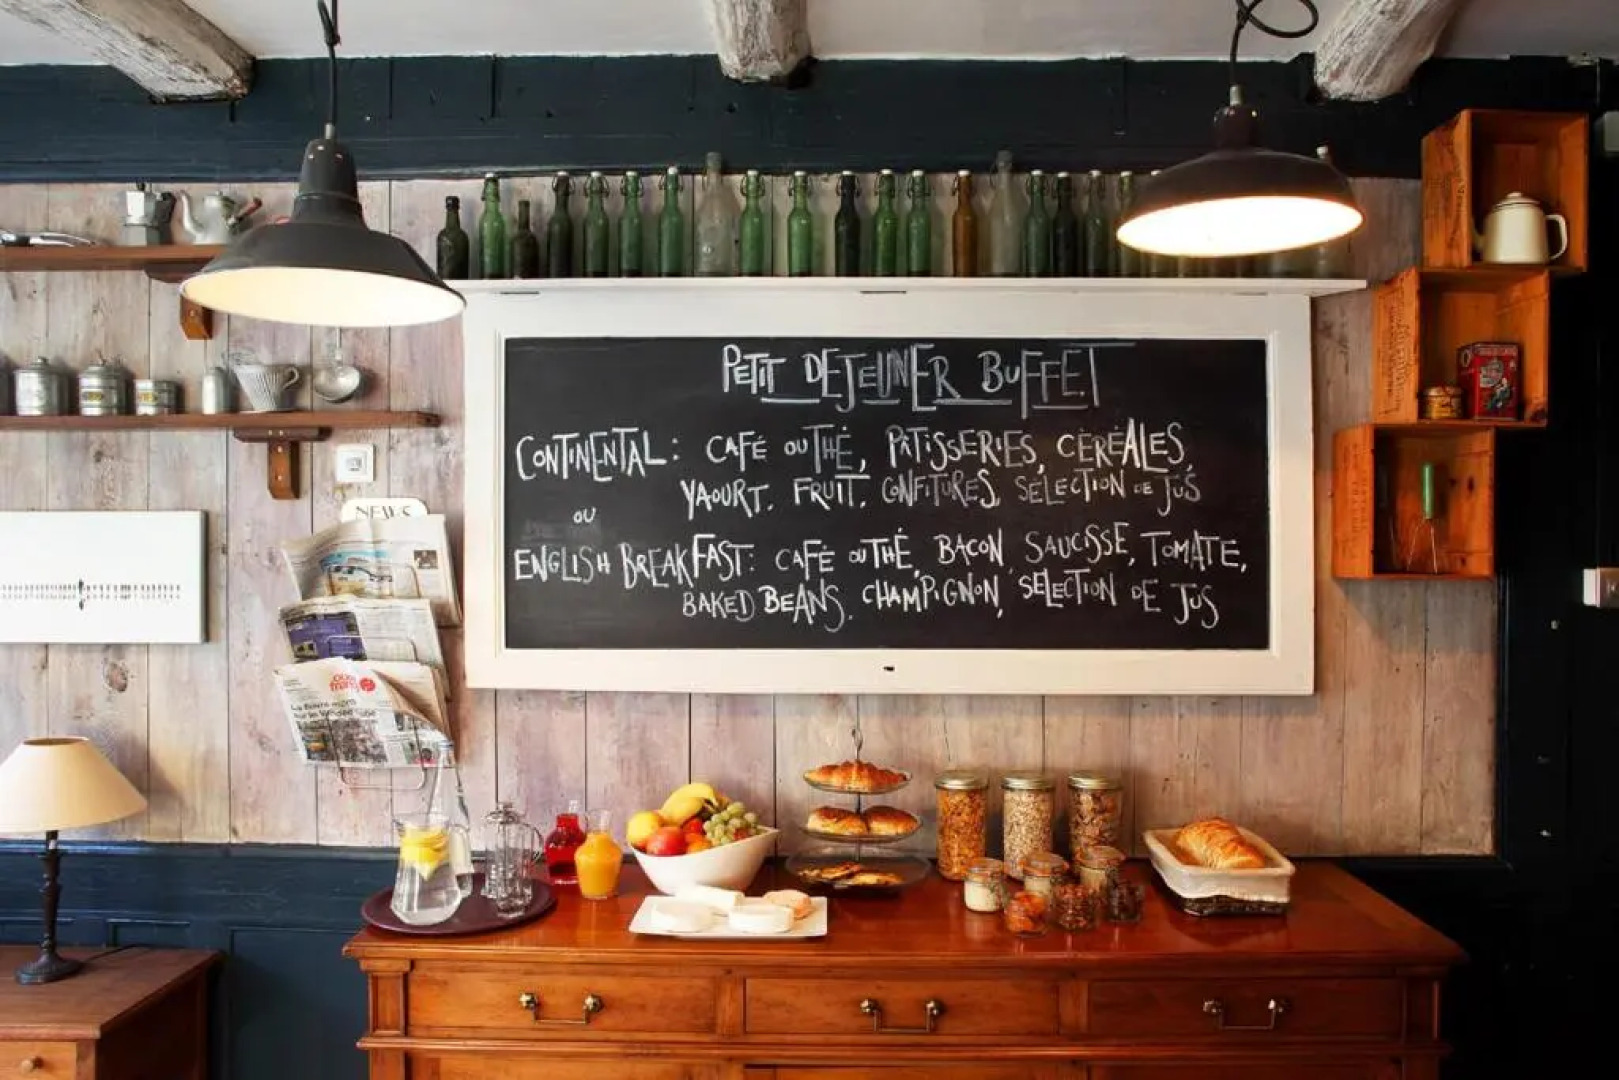 PETIT DEJEUNER BUFFET
CONTINENTAL: CAFÉ OU THÉ, PATISSERIES, CÉRÉALES,
YAOURT, FRUIT, CONFITURES, SELECTION DE JUS
OU
ENGLISH BREAKFAST: CAFÉ OU THÉ, BACON, SAUCISSE, TOMATE,
BAKED BEANS, CHAMPIGNON, SELECTION DE JUS
NEWS